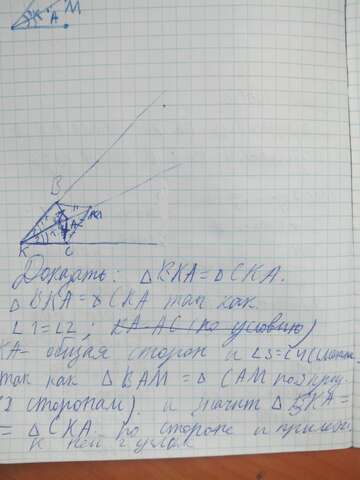 K A M
B
A M
K C
Доказать: △BKA = △CKA.
△BKA = △CKA так как
∠1=∠2; KA-AC (по условию)
KA- общая сторон и ∠3=∠4
так как △BAM = △CAM по
сторонам), а значит △BKA =
= △CKA по стороне и
к ней углах